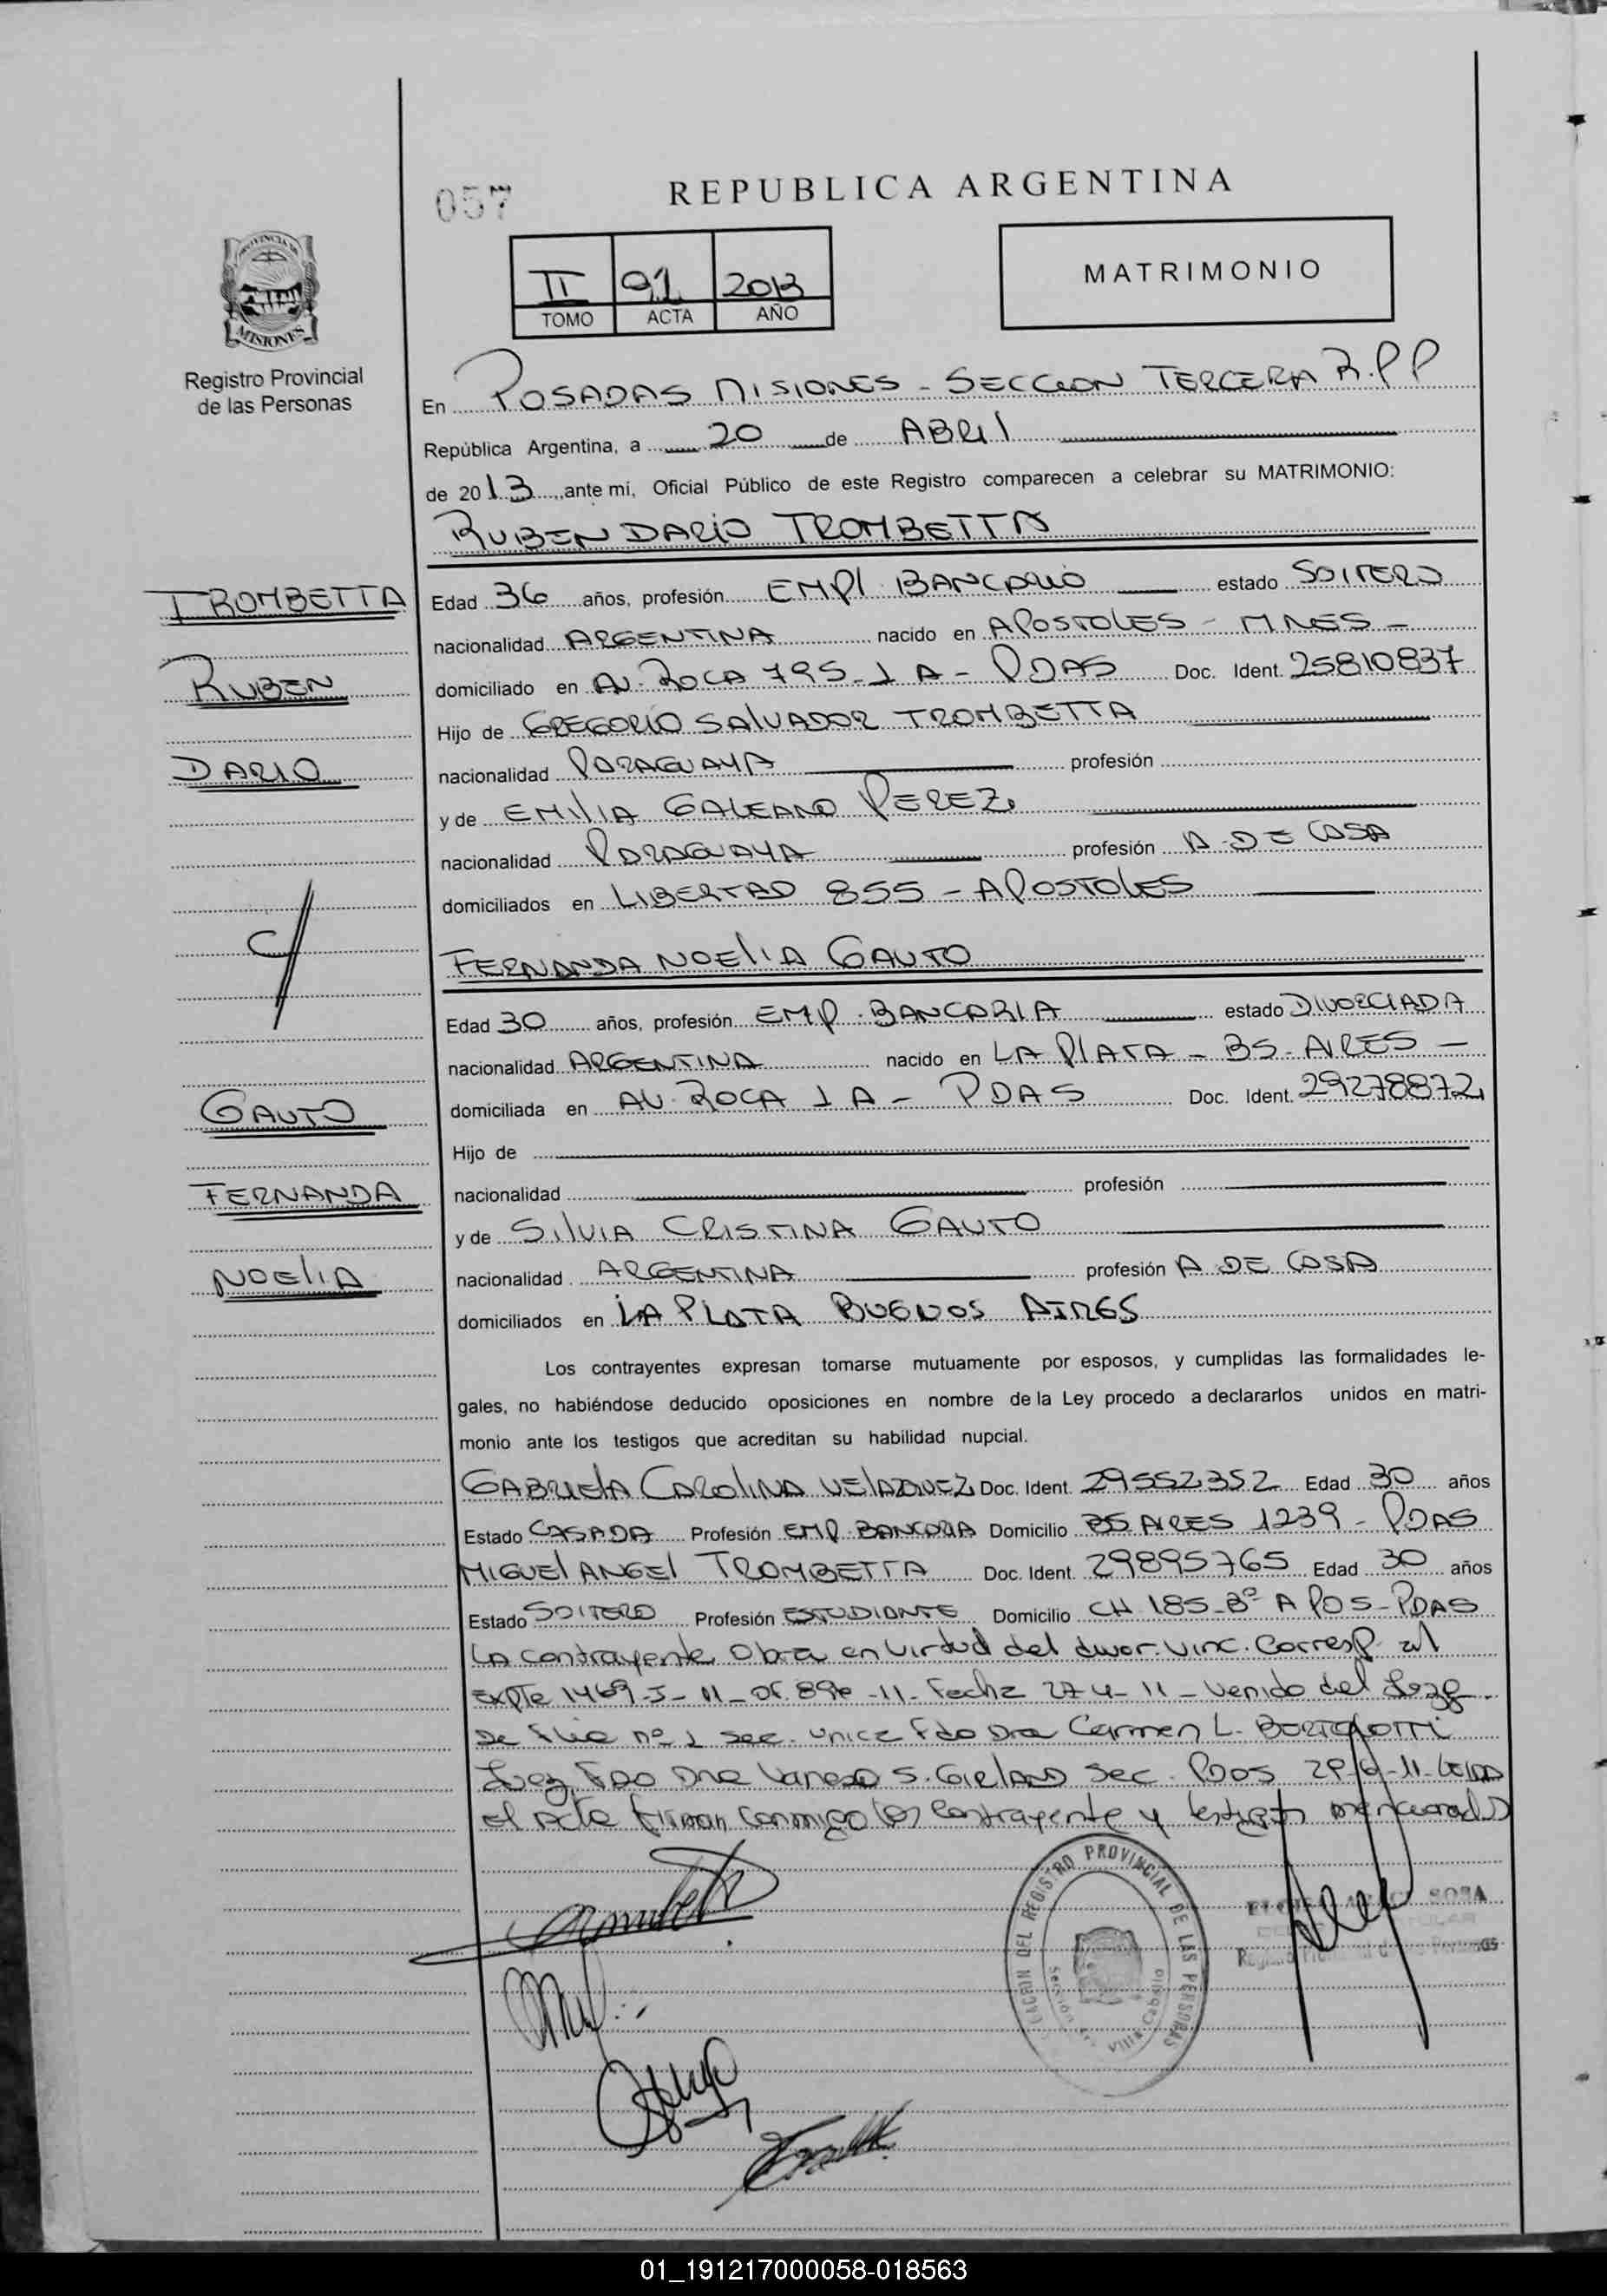 057
REPUBLICA ARGENTINA
PROVINCIA DE
MISIONES
Registro Provincial
de las Personas
II 91 2013
TOMO ACTA AÑO
MATRIMONIO
En POSADAS MISIONES - SECCION TERCERA R.P.P
República Argentina, a 20 de ABRIL
de 2013, ante mí, Oficial Público de este Registro comparecen a celebrar su MATRIMONIO:
RUBEN DARIO TROMBETTA
TROMBETTA
RUBEN
DARIO
Edad 36 años, profesión EMPL BANCARIO estado SOLTERO
nacionalidad ARGENTINA nacido en APOSTOLES - MNES -
domiciliado en AV. ROCA 795 - 1 A - PDAS Doc. Ident. 25810837
Hijo de GREGORIO SALVADOR TROMBETTA
nacionalidad PARAGUAYA profesión
y de EMILIA GALEANO PEREZ
nacionalidad PARAGUAYA profesión A DE CASA
domiciliados en LIBERTAD 855 - APOSTOLES
C/
FERNANDA NOELIA GAUTO
GAUTO
FERNANDA
NOELIA
Edad 30 años, profesión EMP. BANCARIA estado DIVORCIADA
nacionalidad ARGENTINA nacido en LA PLATA - BS. AIRES -
domiciliada en AV. ROCA 1 A - PDAS Doc. Ident. 29278872
Hijo de
nacionalidad profesión
y de SILVIA CRISTINA GAUTO
nacionalidad ARGENTINA profesión A DE CASA
domiciliados en LA PLATA BUENOS AIRES
Los contrayentes expresan tomarse mutuamente por esposos, y cumplidas las formalidades le-
gales, no habiéndose deducido oposiciones en nombre de la Ley procedo a declararlos unidos en matri-
monio ante los testigos que acreditan su habilidad nupcial.
GABRIELA CAROLINA VELAZQUEZ Doc. Ident. 29552352 Edad 30 años
Estado CASADA Profesión EMP. BANCARIA Domicilio BS AIRES 1239 - PDAS
MIGUEL ANGEL TROMBETTA Doc. Ident. 29895765 Edad 30 años
Estado SOLTERO Profesión ESTUDIANTE Domicilio CH 185 - Bº A POS - PDAS
La contrayente Obra en virtud del divor. vinc. Corresp. al
Expte 1469-J-11- Of. 896-11. Fecha 27-4-11 - venido del Juzg
De Flia nº 1 Sec. Unica Fdo Dra Carmen L. BORTOLOTTI
Juez, FDO Dra Vanesa S. Sec. PDAS Leida
el Acta firman conmigo los contrayente y testigos mencionados
REGISTRO PROVINCIAL DE LAS PERSONAS
Villa Cabello
SOSA
01_191217000058-018563